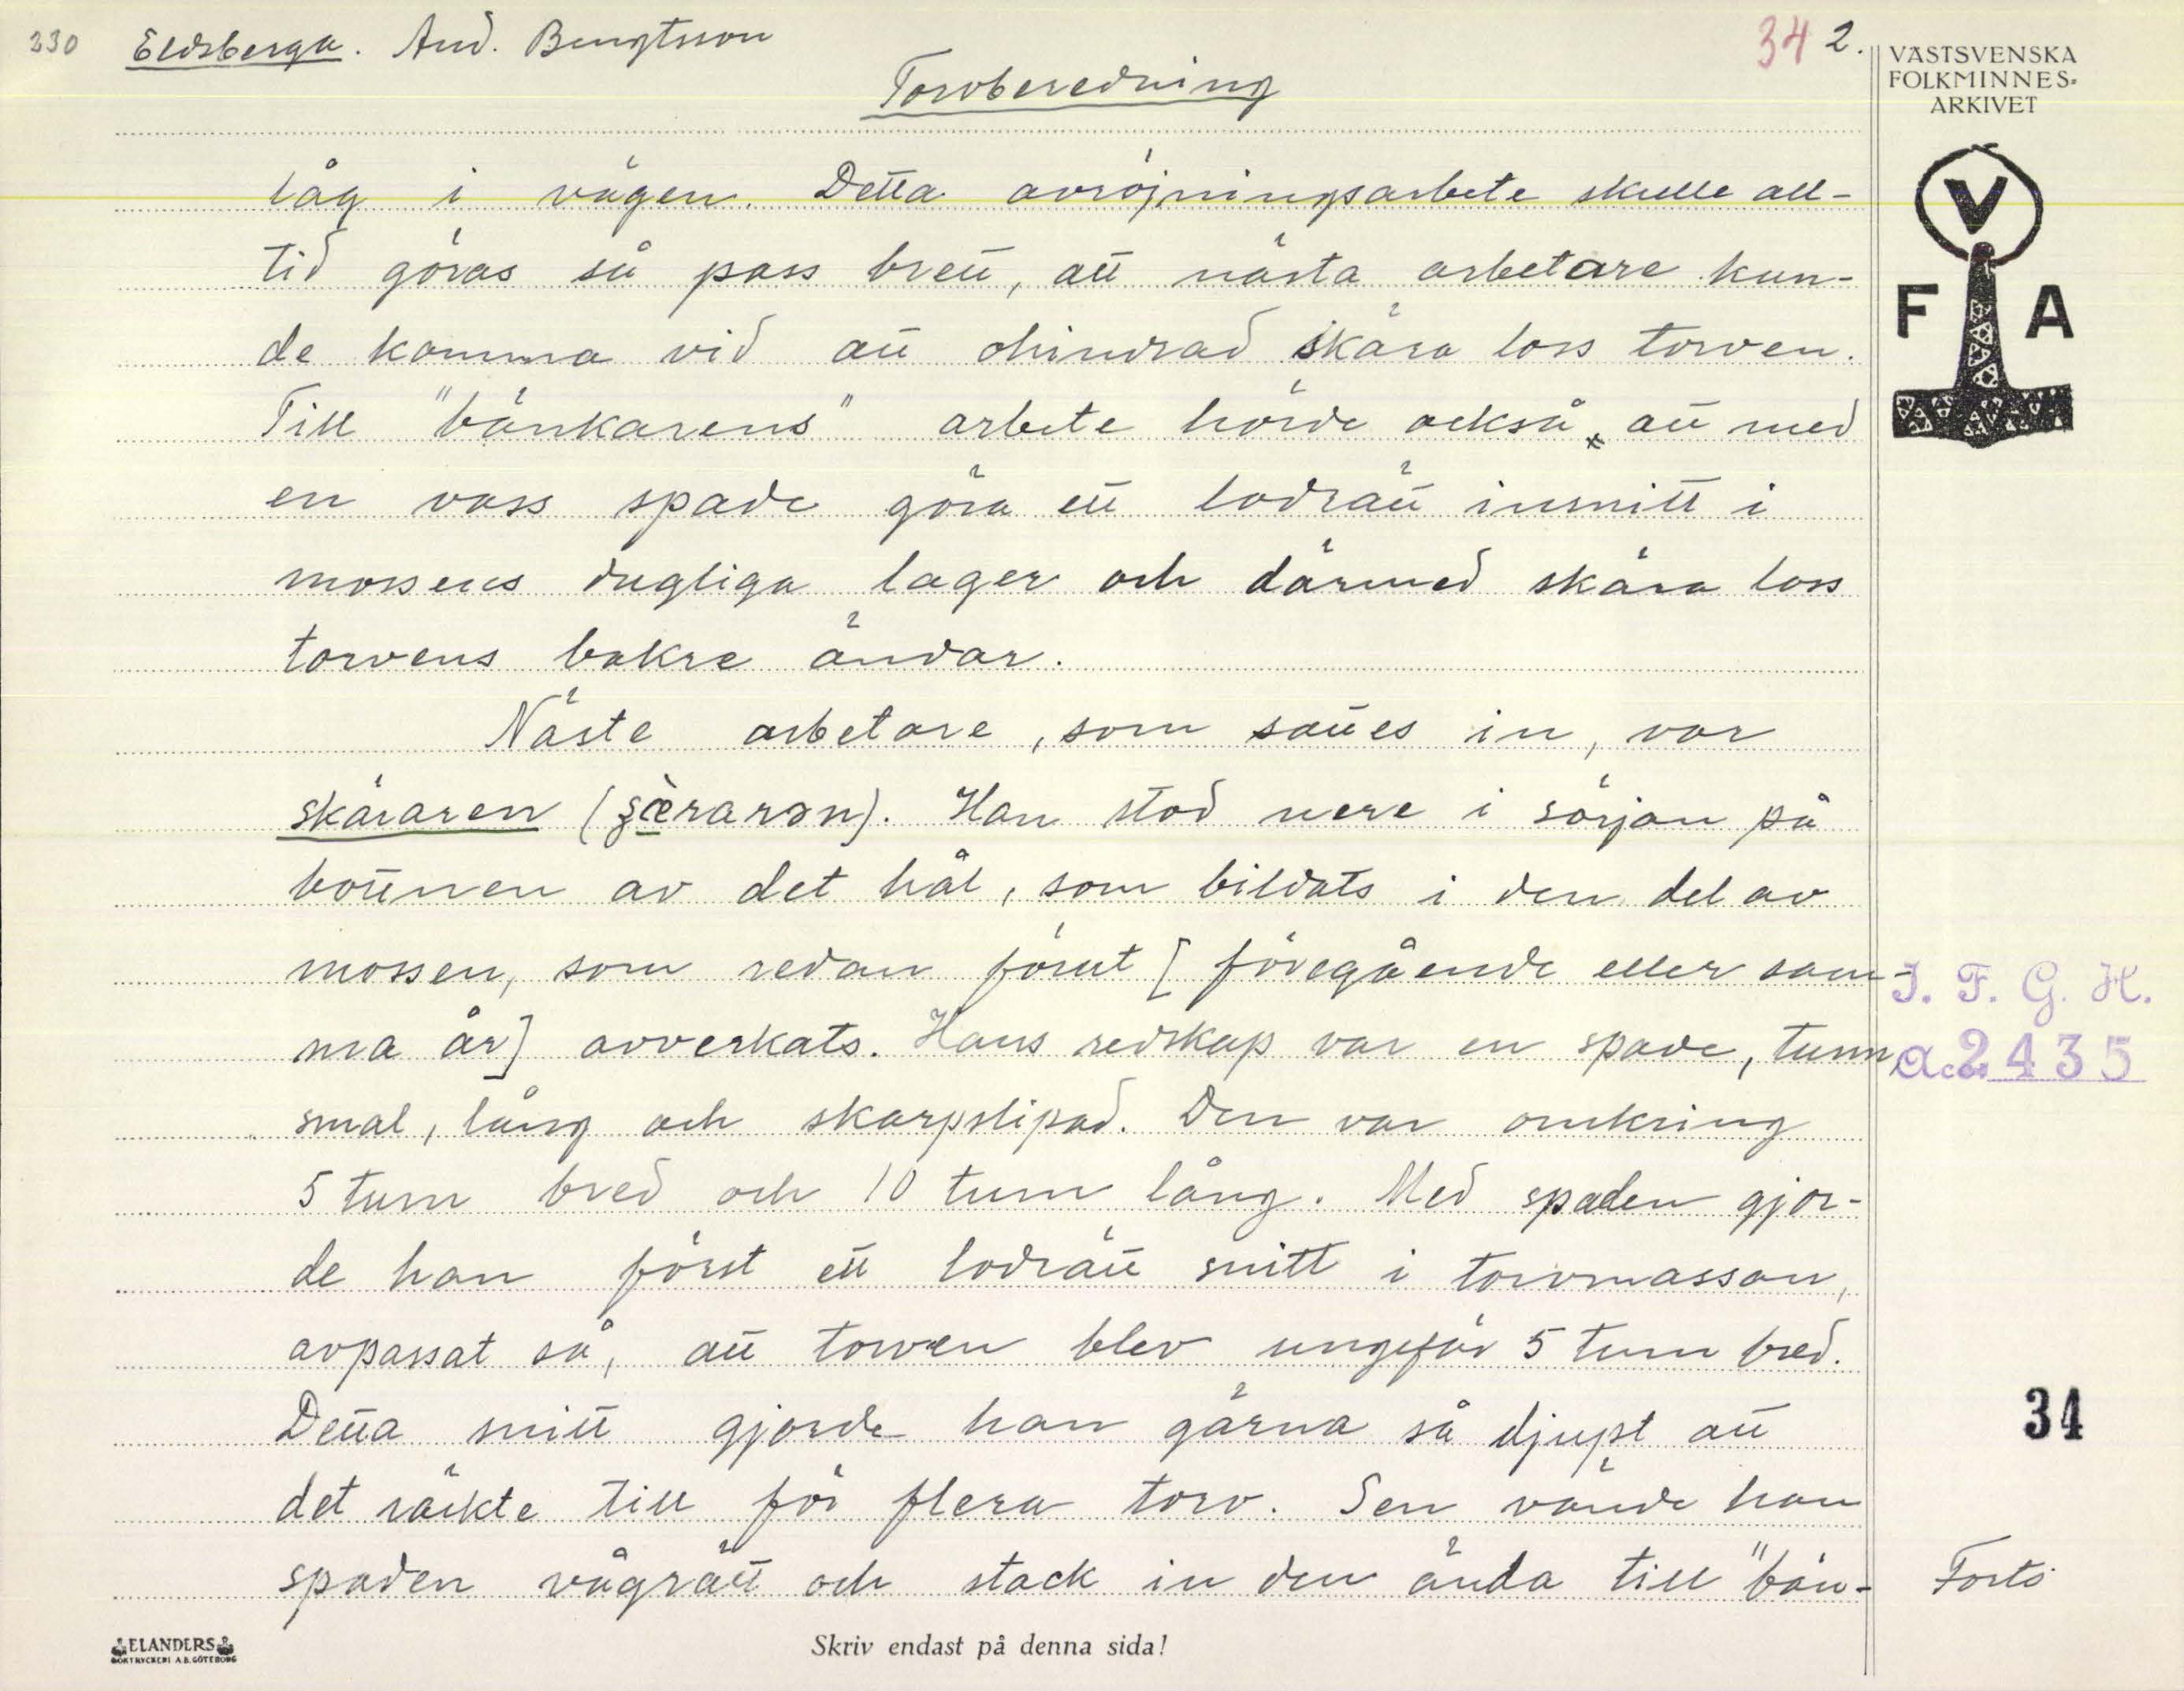 230 Eldsberga. And. Bengtsson 34 2.
Torvberedning
VÄSTSVENSKA
FOLKMINNES-
ARKIVET
V
F A
låg i vägen. Detta avröjningsarbete skulle all-
tid göras så pass brett, att nästa arbetare kun-
de komma vid att ohindrad skära loss torven.
Till "bänkarens" arbete hörde också att med
en vass spade göra ett lodrätt insnitt i
mossens dugliga lager och därmed skära loss
torvens bakre ändar.
Näste arbetare, som sattes in, var
skäraren (ʂæ̀rarən). Han stod nere i sörjan på
bottnen av det hål, som bildats i den del av
mossen, som redan förut [föregående eller sam-
ma år] avverkats. Hans redskap var en spade, tunn,
smal, lång och skarpslipad. Den var omkring
5 tum bred och 10 tum lång. Med spaden gjor-
de han först ett lodrätt snitt i torvmassan,
avpassat så, att torven blev ungefär 5 tum bred.
Detta snitt gjorde han gärna så djupt att
det räckte till för flera torv. Sen vände han
spaden vågrätt och stack in den ända till "bän-
I. F. G. H.
Acc. 2435
34
Forts.
ELANDERS
BOKTRYCKERI A.B. GÖTEBORG
Skriv endast på denna sida!